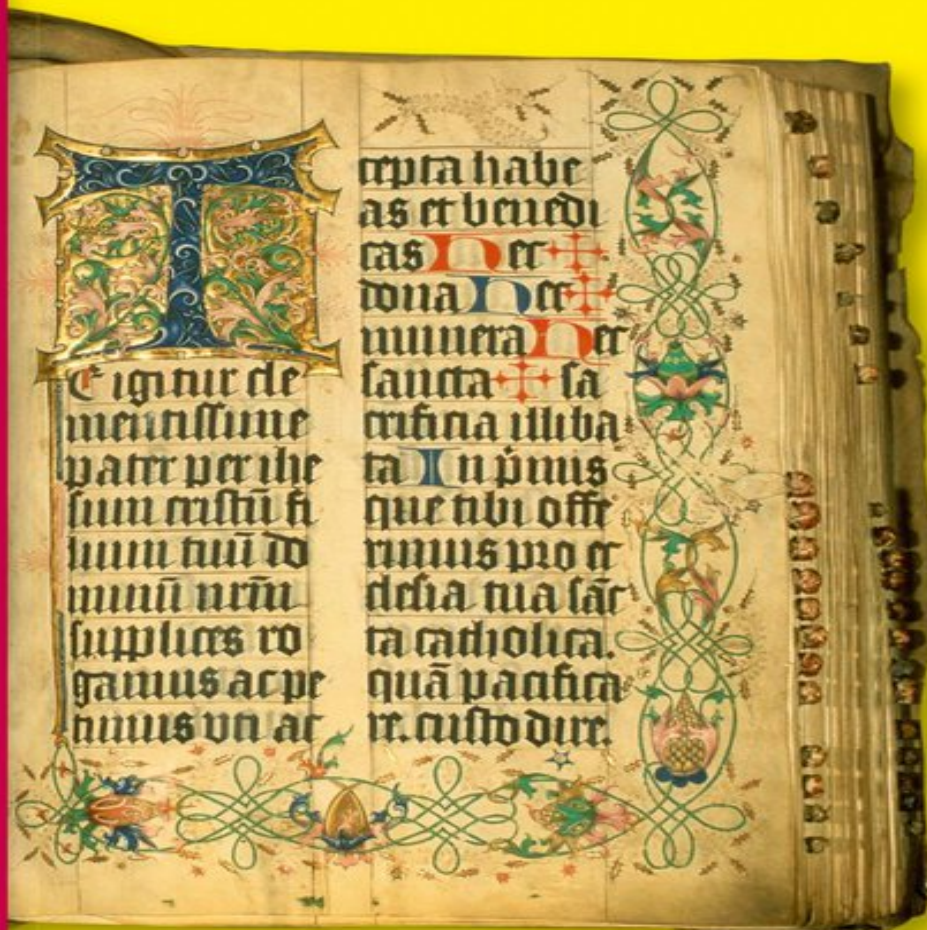 T
E igitur cle
mentissime
pater per ihe
sum cristū fi
lium tuū do
minū nrm̄
supplices ro
gamus ac pe
timus vti ac
cepta habe
as et benedi
cas Hec ✠
dona Hec ✠
munera Hec
sancta ✠ sa
crificia illiba
ta In p̄mis
que tibi offe
rimus pro ec
clesia tua sāc
ta catholica.
quā pacifica
re. custodire.